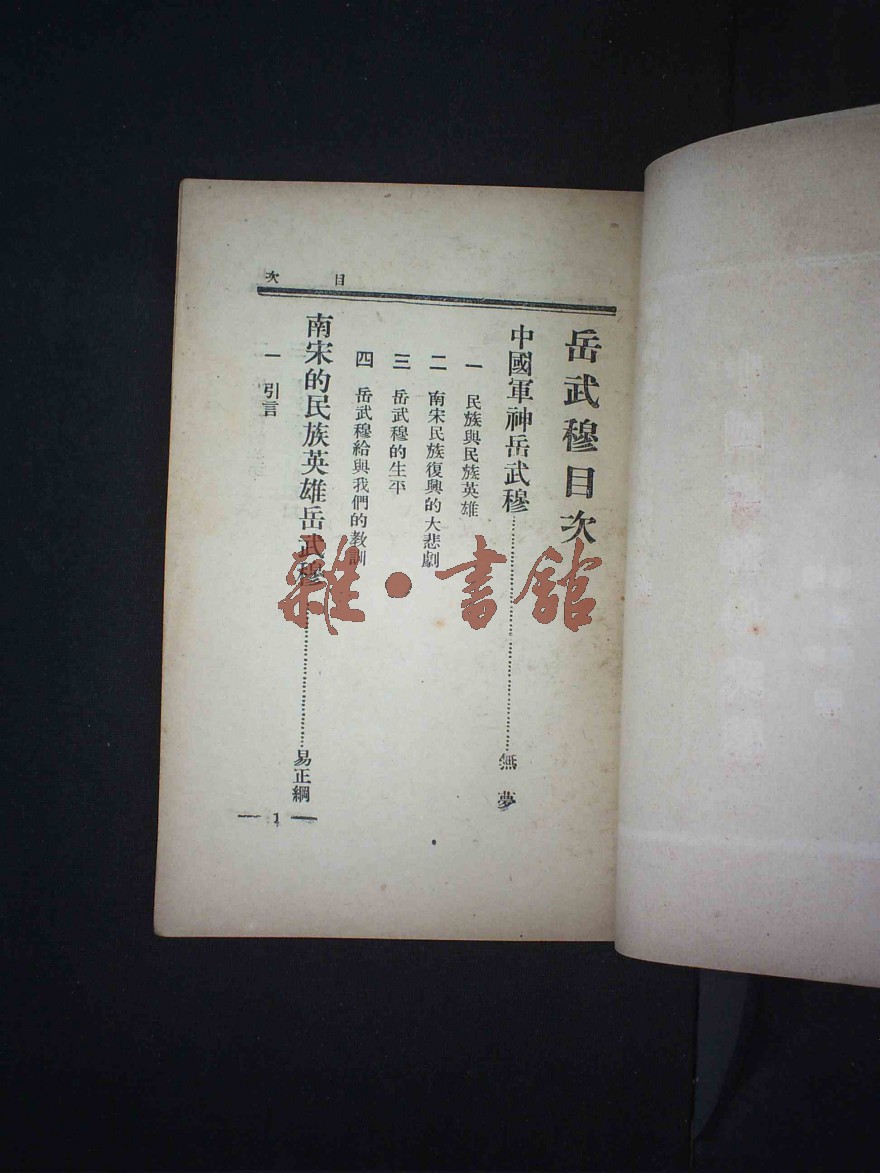 目次
岳武穆目次
中國軍神岳武穆……無夢
一 民族與民族英雄
二 南宋民族復興的大悲劇
三 岳武穆的生平
四 岳武穆給與我們的教訓
南宋的民族英雄岳武穆……易正綱
一 引言
— 1 —
雜·書館